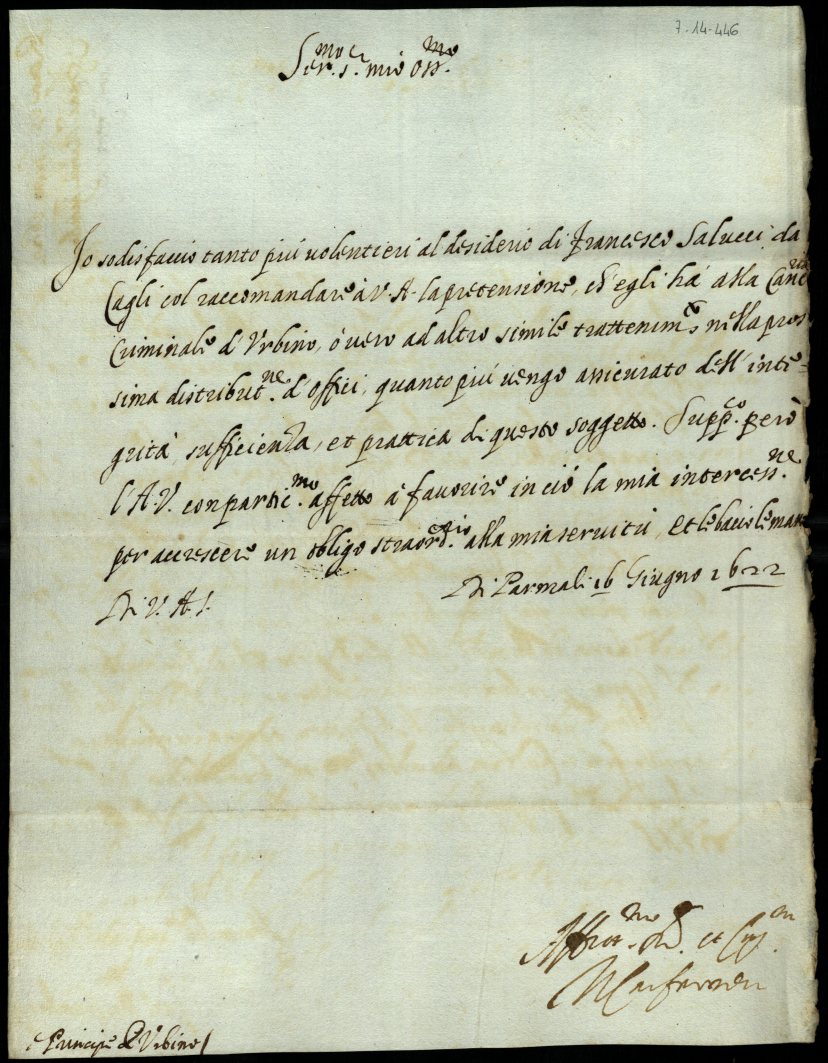 7-14-446
Ser.mo S.r mio Oss.mo
Io sodisfaccio tanto più volentieri al desiderio di Francesco Salucci da
Cagli col raccomandare à V. A. la pretensione, ch'egli hà alla Canc.ria
Criminale d'Urbino, ò vero ad altro simile trattenim.to nella pros
sima distribut.ne d'offici, quanto più vengo assicurato dell'inte=
grità, sufficienza, et prattica di questo soggetto. Supp.co però
l'A.V. con partic.mo affetto à favorire in ciò la mia intercess.ne
per accrescere un obligo straord.rio alla mia servitù, et le bacio le mani
Di Parma li 16 Giugno 1622
Di V. A. S.
Aff.mo et
Principe d'Urbino